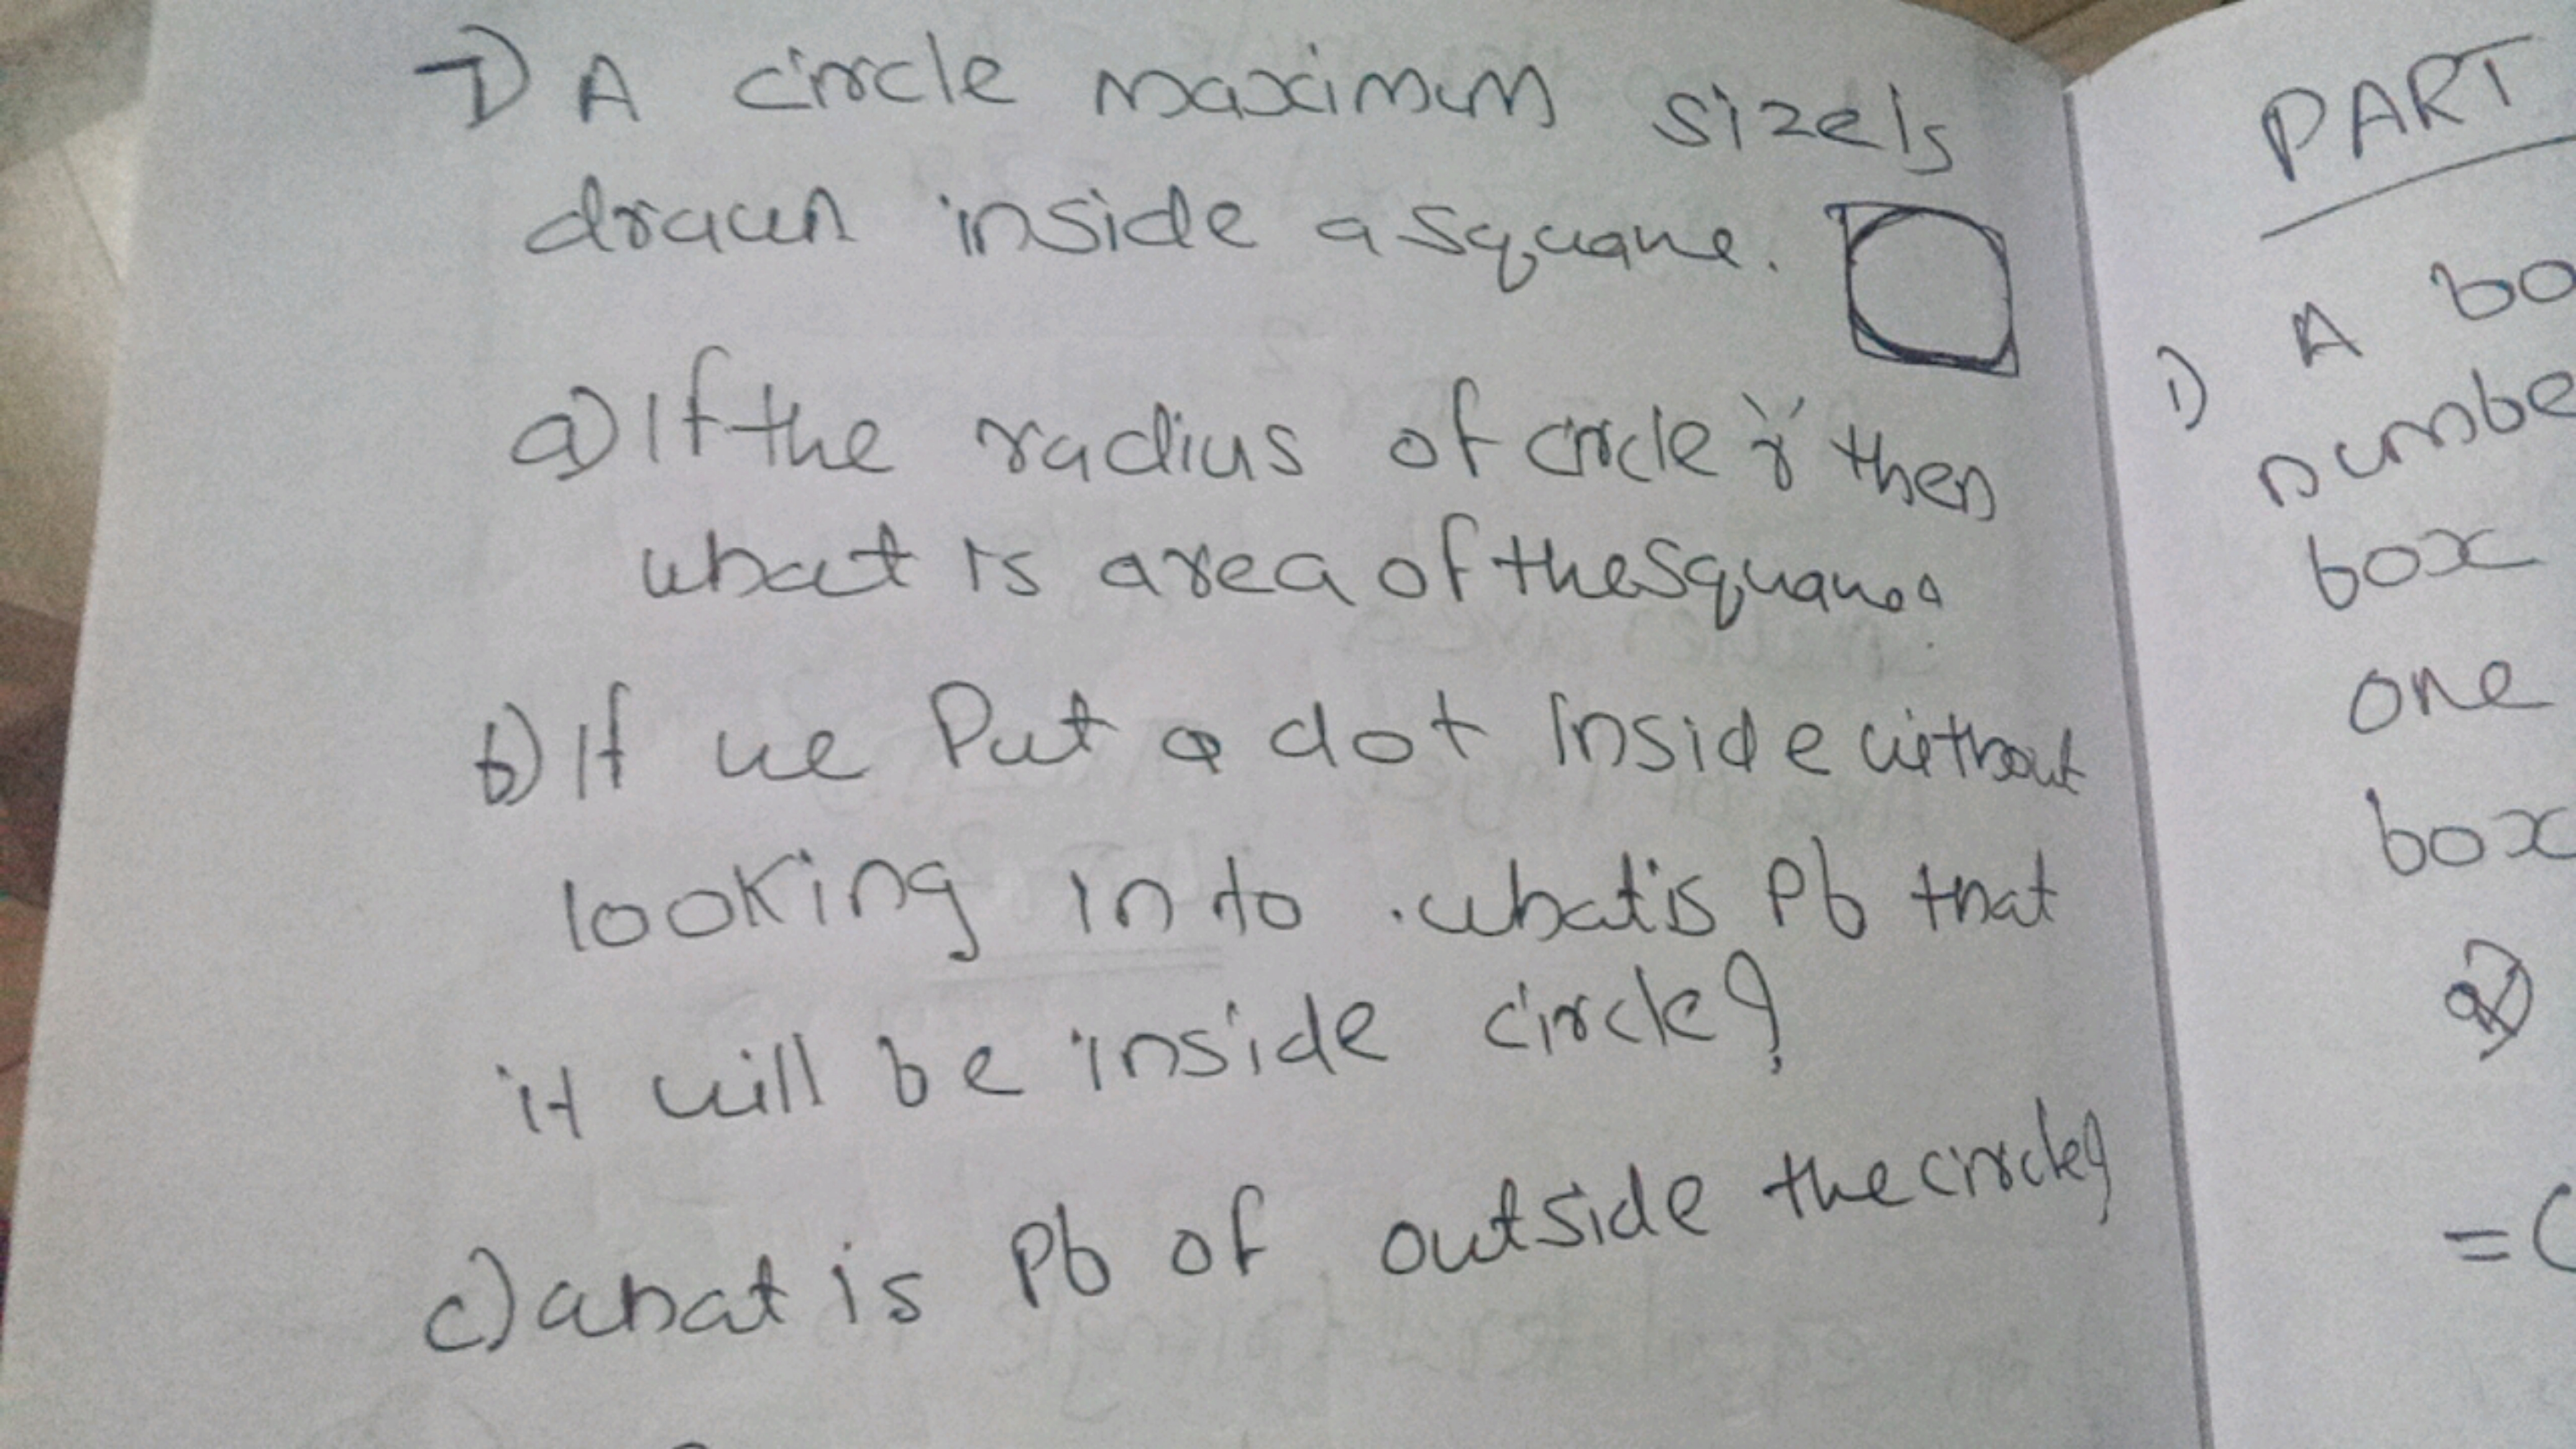 7) A circle maximum size is
drawn inside a square.
a) If the radius of circle 'r' then
what is area of the square?
b) If we Put a dot inside without
looking in to . what is Pb that
it will be inside circle?
c) what is Pb of outside the circle?
PART
1) A bo
numbe
box
one
box
2)
= (